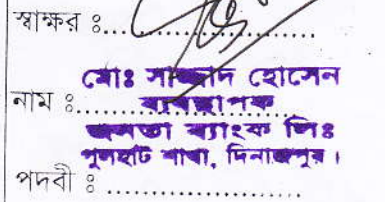 স্বাক্ষর ঃ
মোঃ সাজ্জাদ হোসেন
নাম ঃ
ব্যবস্থাপক
জনতা ব্যাংক লিঃ
পুলহাট শাখা, দিনাজপুর।
পদবী ঃ